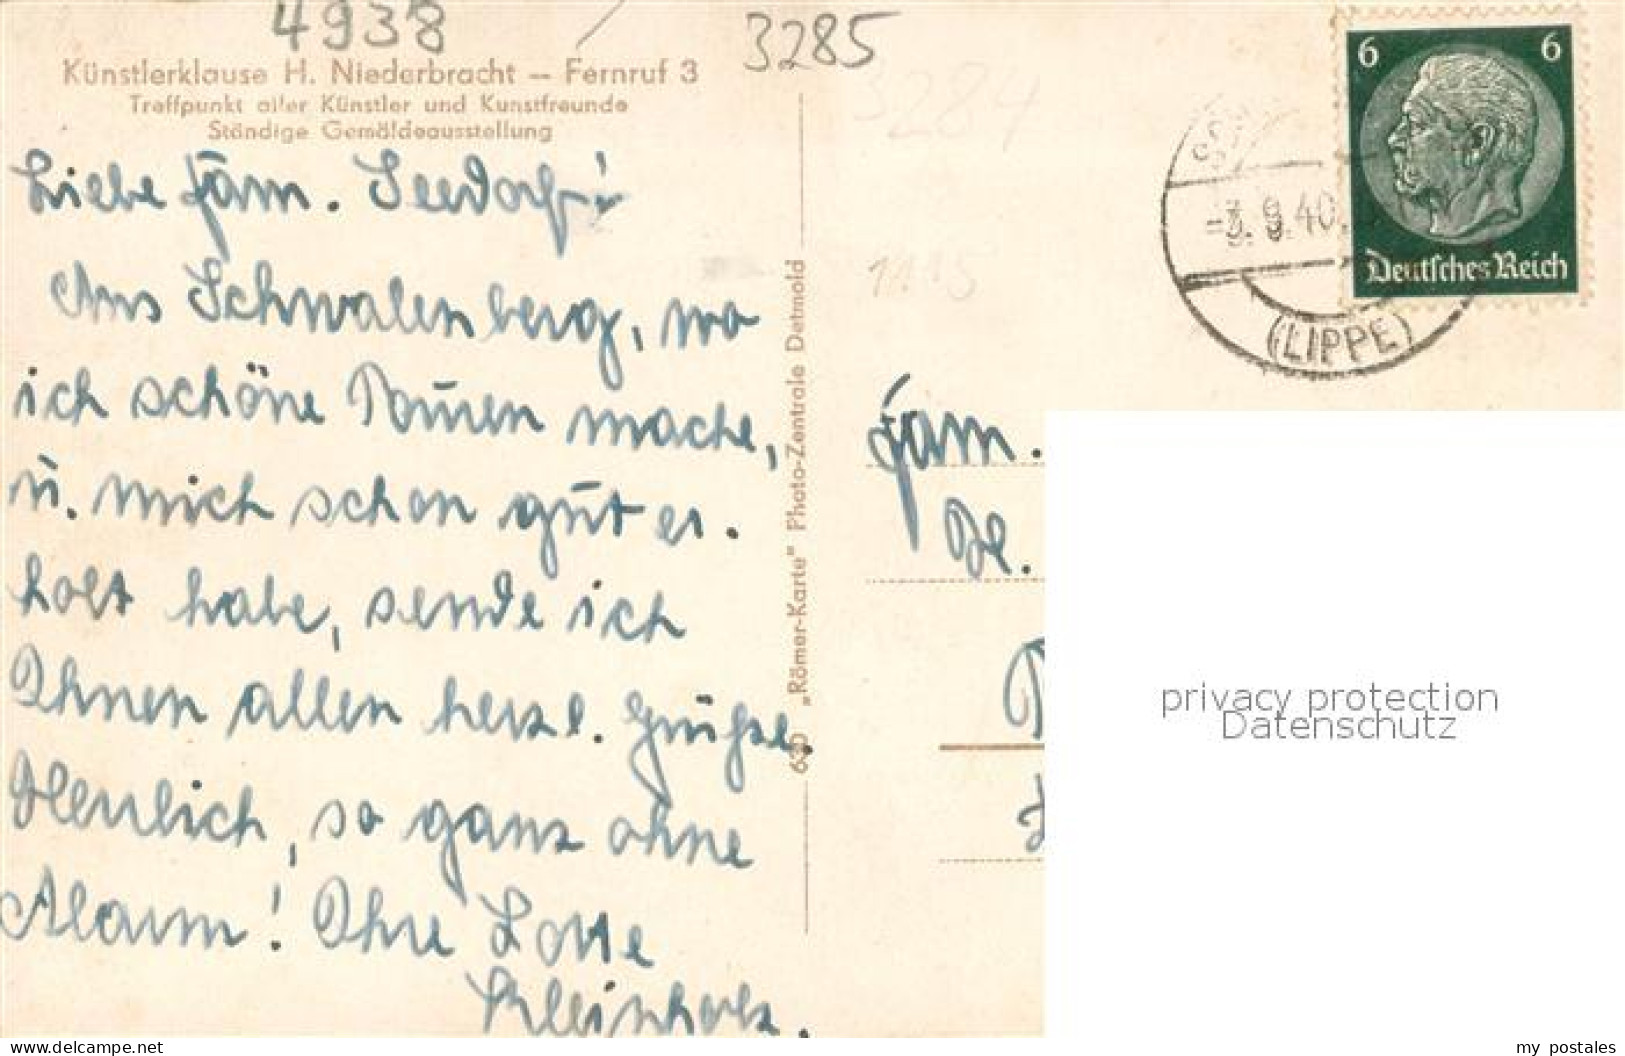 4938
3285
Künstlerklause H. Niederbracht — Fernruf 3
Treffpunkt aller Künstler und Kunstfreunde
Ständige Gemäldeausstellung
3284
Liebe Fam. Seedorf!
Aus Schwalenberg, wo
ich schöne Touren mache,
u. mich schon gut er-
holt habe, sende ich
Ihnen allen herzl. Grüße.
Herrlich, so ganz ohne
Alarm! Ihre Lotte
Kleinholz.
630 „Römer-Karte" Photo-Zentrale Detmold
1115
6 6
Deutsches Reich
40
(LIPPE)
Fam.
privacy protection
Datenschutz
www.delcampe.net
my_postales